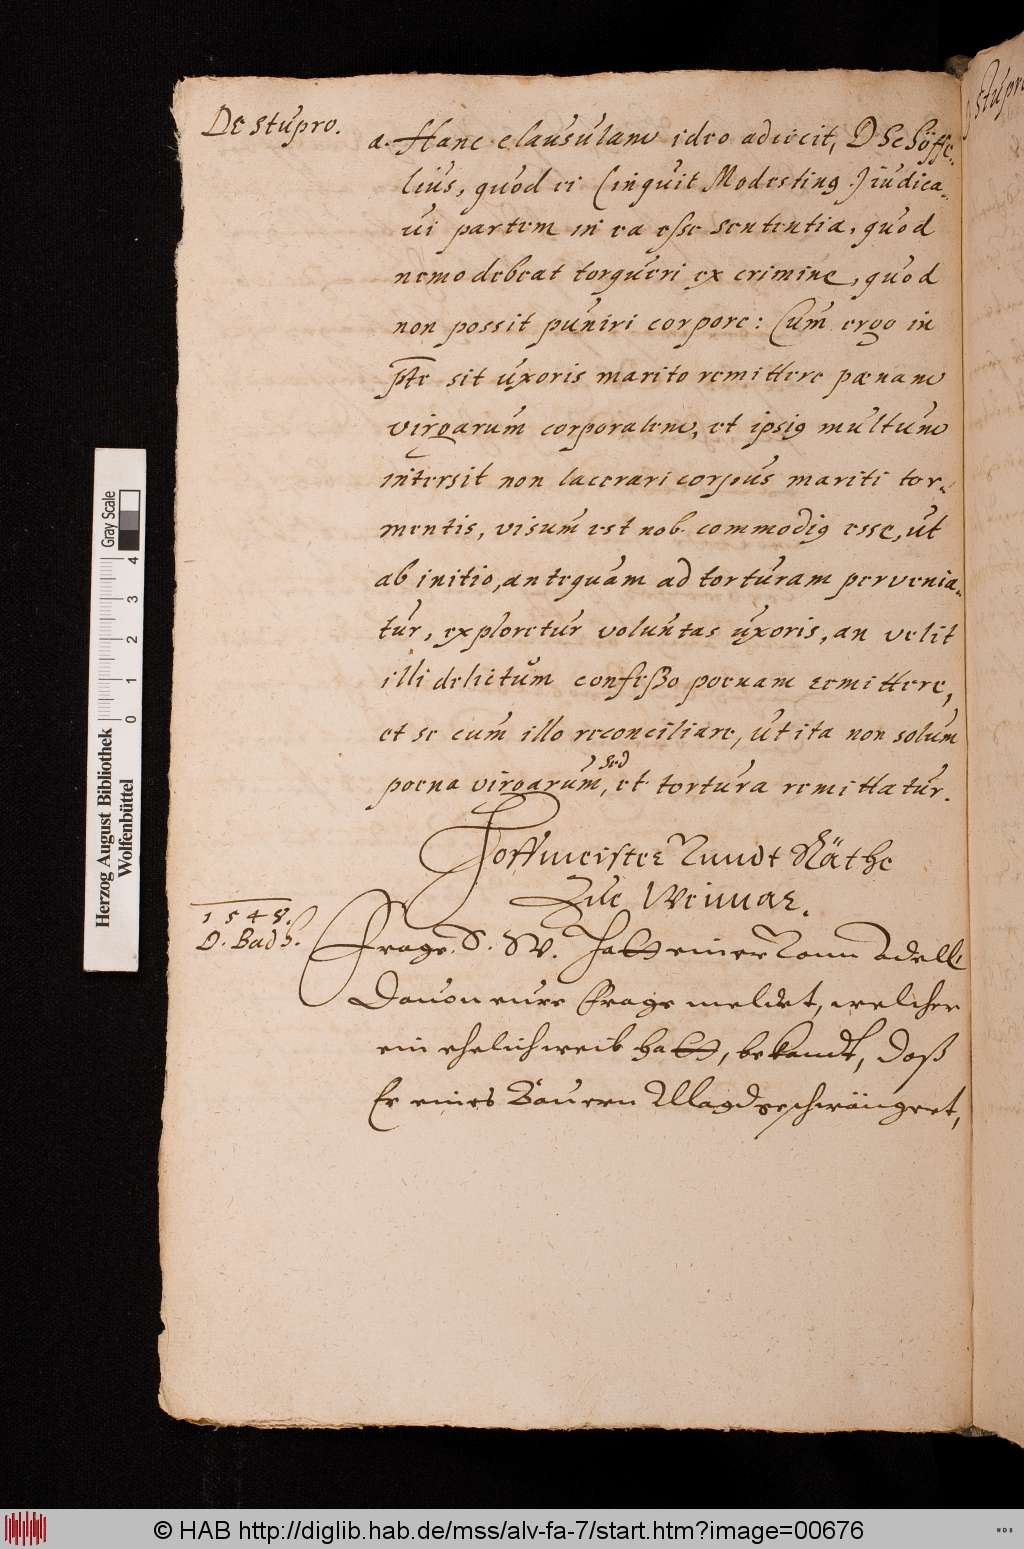 De stupro.
a. Hanc clausulam ideo adiecit, D Schöffe-
lius, quod ei (inquit Modestinus) iudica-
ui partem in ea esse sententia, quod
nemo debeat torqueri ex crimine, quod
non possit puniri corpore: Cum ergo in
pt̄e sit uxoris marito remittere pænam
virgarum corporalem, et ipsius multum
intersit non lacerari corpus mariti tor-
mentis, visum est nob. commodius esse, ut
ab initio, antequam ad torturam pervenia-
tur, exploretur voluntas uxoris, an velit
illi delictum confeßo poenam remittere,
et se cum illo reconciliare, ut ita non solum
poena virgarum, sed et tortura remittatur.
Hoffmeister Vnndt Räthe
Zue Weimar.
1548.
D. Bads.
Frage. S. W. Hatt einer Vonn Adell
Dauon eure Frage meldet, welcher
ein ehelich weib hatt, bekandt, daß
Er eines Bauern Magd geschwängert,
stupro
Herzog August Bibliothek
Wolfenbüttel
0 1 2 3 4
Gray Scale
© HAB http://diglib.hab.de/mss/alv-fa-7/start.htm?image=00676